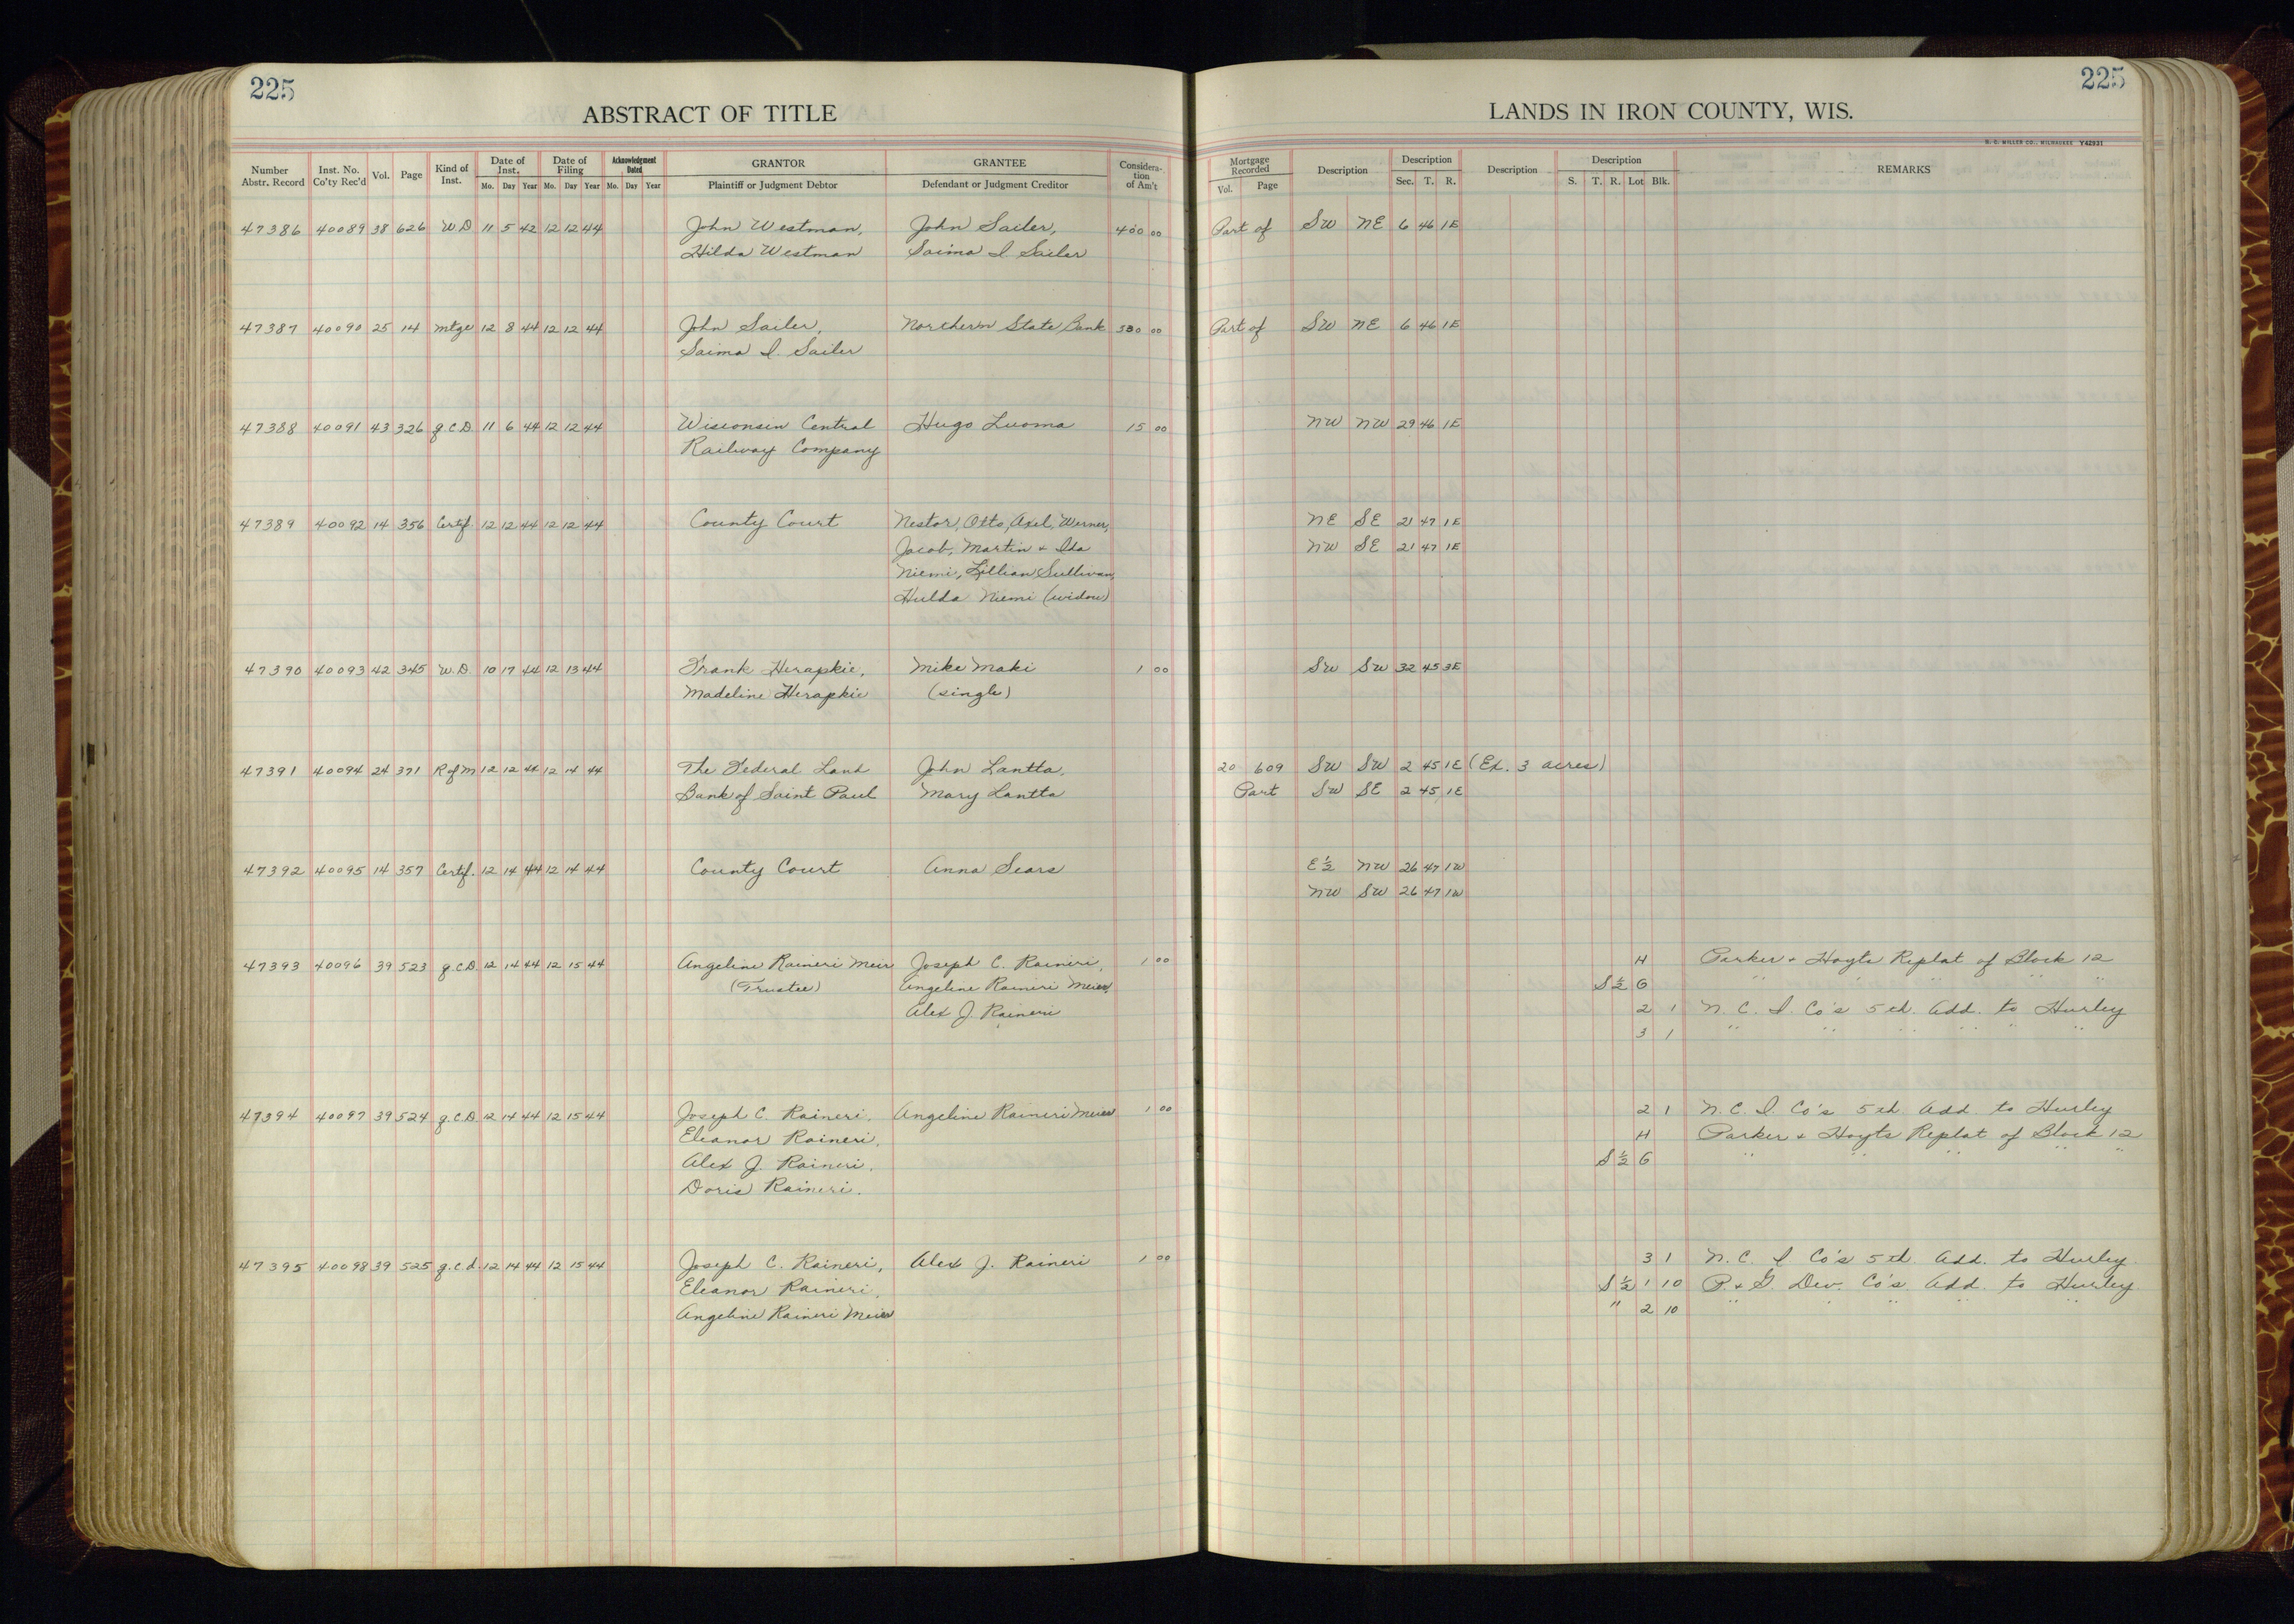 225
ABSTRACT OF TITLE
Number Abstr. Record | Inst. No. Co'ty Rec'd | Vol. | Page | Kind of Inst. | Date of Inst. Mo. Day Year | Date of Filing Mo. Day Year | Acknowledgment Dated Mo. Day Year | GRANTOR Plaintiff or Judgment Debtor | GRANTEE Defendant or Judgment Creditor | Considera-tion of Am't
225
LANDS IN IRON COUNTY, WIS.
H. C. MILLER CO., MILWAUKEE Y42931
Mortgage Recorded Vol. Page | Description | Description Sec. T. R. | Description | Description S. T. R. Lot Blk. | REMARKS
47386 40089 38 626 W.D 11 5 42 12 12 44 John Westman, John Sailer, 400 00 Part of SW NE 6 46 1E
Hilda Westman Saima I Sailer
47387 40090 25 14 mtge 12 8 44 12 12 44 John Sailer, Northern State Bank 530 00 Part of SW NE 6 46 1E
Saima I. Sailer
47388 40091 43 326 q C D 11 6 44 12 12 44 Wisconsin Central Hugo Luoma 15 00 NW NW 29 46 1E
Railway Company
47389 40092 14 356 Certif. 12 12 44 12 12 44 County Court Nestor, Otto, Axel, Werner, NE SE 21 47 1E
Jacob, Martin + Ida NW SE 21 47 1E
Niemi, Lillian Sullivan,
Hulda Niemi (widow)
47390 40093 42 345 W.D. 10 17 44 12 13 44 Frank Herapkie, Mike Maki 1 00 SW SW 32 45 3E
Madeline Herapkie (single)
47391 40094 24 371 R of M 12 12 44 12 14 44 The Federal Land John Lantta, 20 609 SW SW 2 45 1E (Ex. 3 acres)
Bank of Saint Paul Mary Lantta Part SW SE 2 45 1E
47392 40095 14 357 Certif. 12 14 44 12 14 44 County Court Anna Sears E ½ NW 26 47 1W
NW SW 26 47 1W
47393 40096 39 523 q.C.D 12 14 44 12 15 44 Angeline Raineri Meier Joseph C. Raineri, 1 00 H Parker + Hoyts Replat of Block 12
(Trustee) Angeline Raineri Meier, S ½ G " " " " "
Alex J. Raineri 2 1 N. C. I. Co's 5th. Add. to Hurley
3 1 " " " " " "
47394 40097 39 524 q.C.D 12 14 44 12 15 44 Joseph C. Raineri, Angeline Raineri Meier 1 00 2 1 N. C. I. Co's 5th. Add. to Hurley
Eleanor Raineri, H Parker + Hoyts Replat of Block 12
Alex J. Raineri, S ½ G " " " " "
Doris Raineri.
47395 40098 39 525 q.c.d. 12 14 44 12 15 44 Joseph C. Raineri, Alex J. Raineri 1 00 3 1 N. C. I Co's 5th. Add. to Hurley.
Eleanor Raineri, S ½ 1 10 P. + G. Dev. Co's. Add. to Hurley.
Angeline Raineri Meier " 2 10 " " " " "